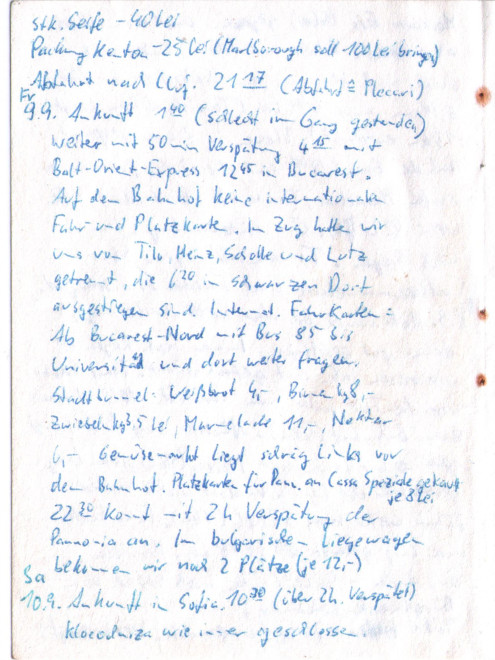 Stk. Seife - 40 Lei
Packung Kenton - 25 Lei (Marlborough soll 100 Lei bringen)
Abfahrt nach Cluj. 21 17 (Abfahrt ≙ Plecari)
Fr
9.9. Ankunft 1 40 (schlecht im Gang gestanden)
weiter mit 50 min Verspätung 4 15 mit
Balt-Orient-Express 12 45 in Bucarest.
Auf dem Bahnhof keine internationalen
Fahr- und Platzkarten. Im Zug hatten wir
uns von Tilo, Heinz, Scholle und Lutz
getrennt, die 6 20 im schwarzen Dort
ausgestiegen sind. Internat. Fahrkarten:
Ab Bucarest-Nord mit Bus 85 bis
Universität und dort weiter fragen.
Stadtbummel- Weißbrot 4,-, Birne kg 8,-
Zwiebeln kg 3,5 Lei, Marmelade 11,-, Nektar
6,- Gemüsemarkt liegt schräg links vor
dem Bahnhof. Platzkarten für Pann. an Cassa Speziale gekauft
je 8 Lei
22 30 kommt mit 2h Verspätung der
Pannonia an. Im bulgarischen Liegewagen
bekommen wir noch 2 Plätze (je 12,-)
Sa
10.9. Ankunft in Sofia. 10 30 (über 2h. Verspätet)
wie immer geschlossen.